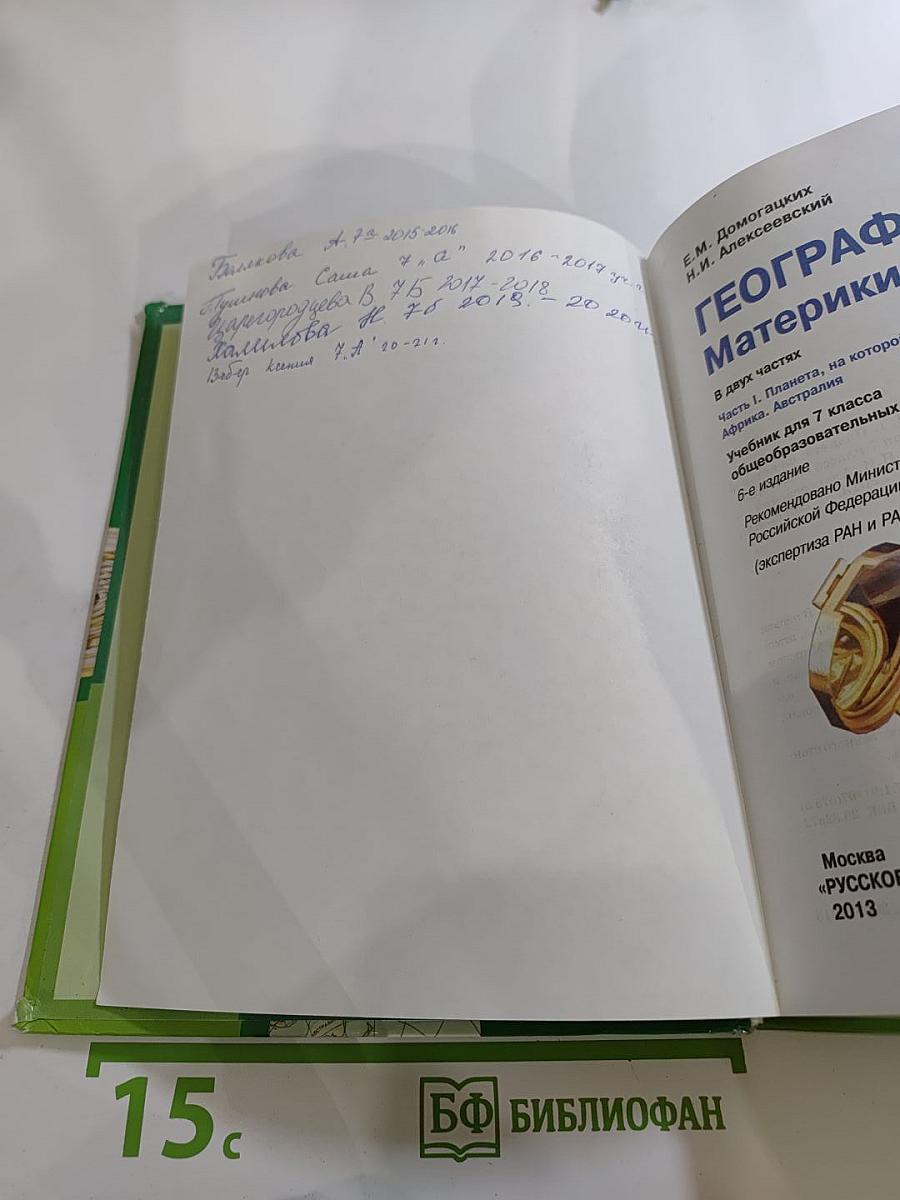 Полякова А. 7а 2015-2016
Саша 7 „а" 2016-2017 уч.г.
Царегородцева В 7Б 2017-2018
Халилова Н. 7б 2019. - 2020г.
Вебер Ксения 7„А" 20-21г.
Е.М. Домогацких
Н.И. Алексеевский
ГЕОГРАФ
Материки
В двух частях
Часть I. Планета, на которой
Африка. Австралия
Учебник для 7 класса
общеобразовательных
6-е издание
Рекомендовано Минист
Российской Федераци
(экспертиза РАН и РА
Москва
«РУССКОЕ
2013
15 с
БФ БИБЛИОФАН